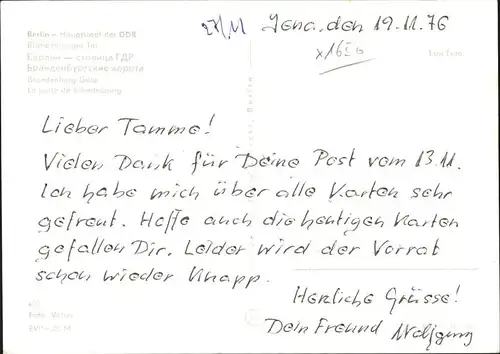 27/11 Jena, den 19.11.76
Berlin — Hauptstadt der DDR
Brandenburger Tor
Берлин — столица ГДР
Бранденбургские ворота
Brandenburg Gate
La porte de Brandebourg
Lieber Tamme!
Vielen Dank für Deine Post vom 13.11.
Ich habe mich über alle Karten sehr
gefreut. Hoffe auch die heutigen Karten
gefallen Dir. Leider wird der Vorrat
schon wieder knapp.
Herzliche Grüsse!
Dein Freund Wolfgang
Foto: